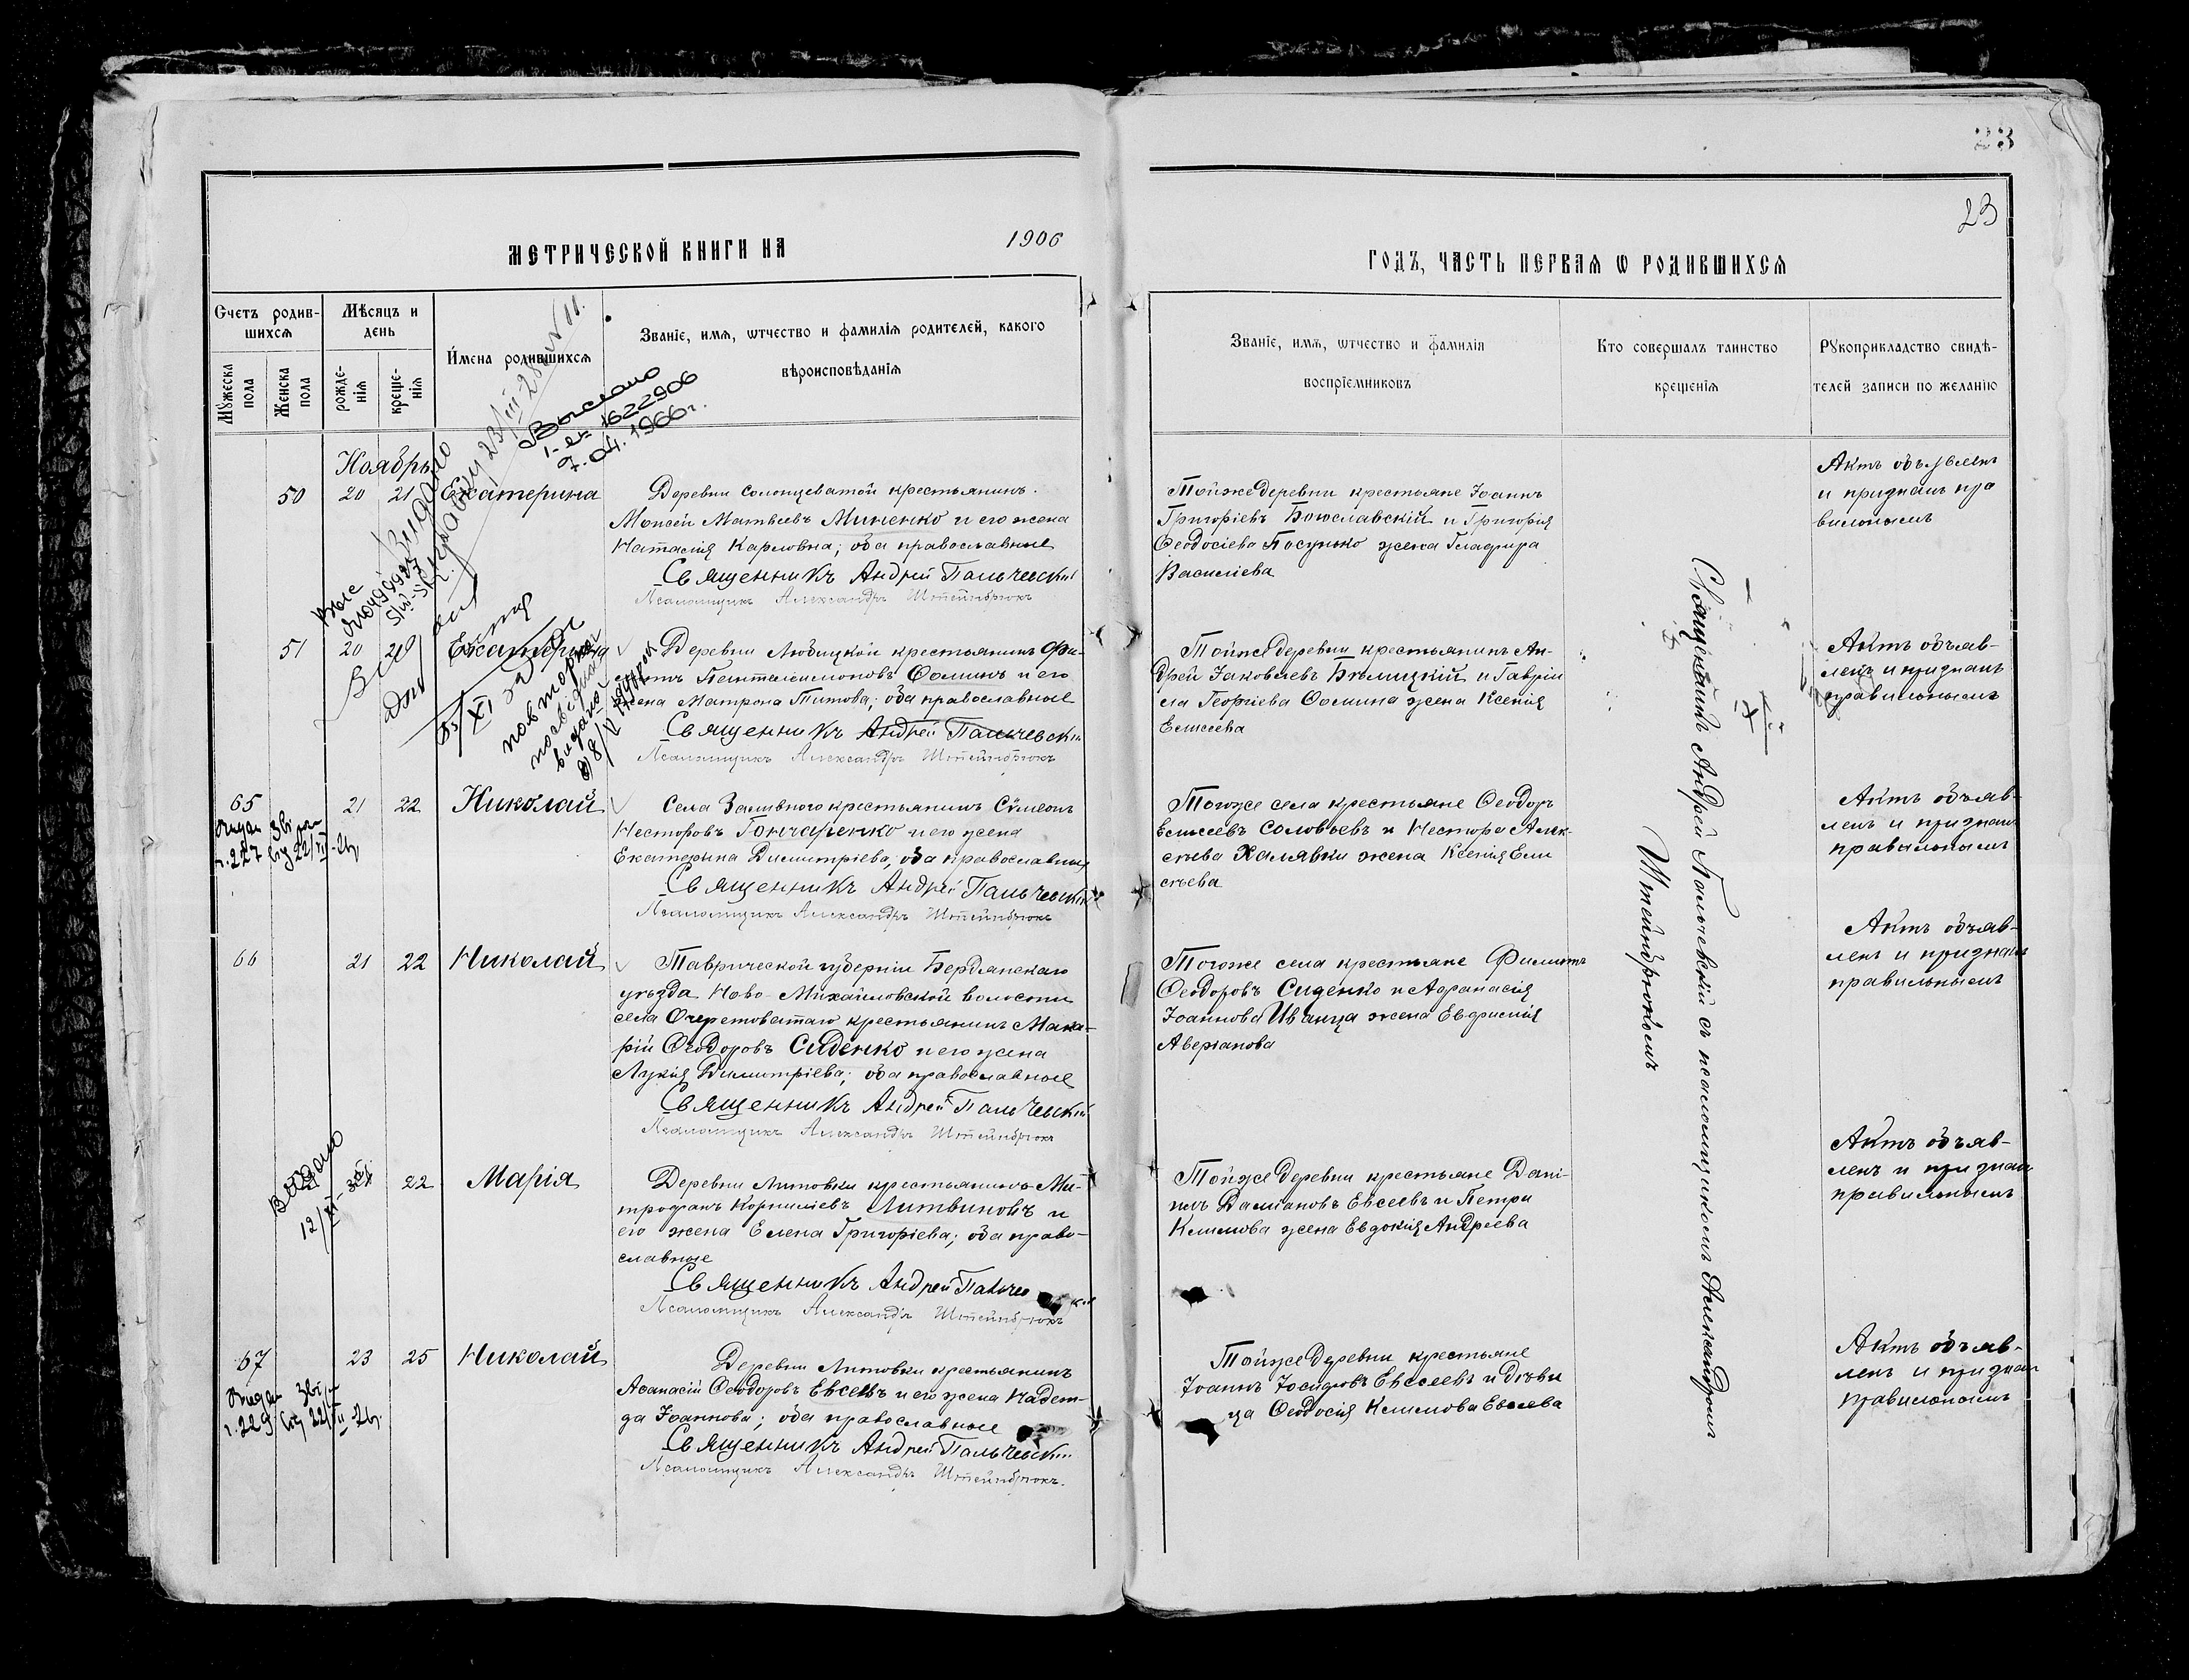 23
23
МЕТРИЧЕСКОЙ КНИГИ НА 1906
ГОДЪ, ЧАСТЬ ПЕРВАѦ Ѡ РОДИВШИХСѦ
Счетъ родив-
шихсѧ
Мѣсяцъ и
день
Имена родившихсѧ
Званіе, имѧ, ѡтчество и фамиліѧ родителей, какого
вѣроисповѣданіѧ
Мꙋжеска
пола
Женска
пола
рожде-
нія
креще-
нія
Званіе, имѧ, ѡтчество и фамиліѧ
воспріемниковъ
Кто совершалъ таинство
крещеніѧ
Рꙋкоприкладство свидѣ-
телей записи по желанію
Выслано
1622906
7.04.1966г.
Ноябрь
50 20 21 Екатерина
Деревни Солонцеватой крестьянинъ
Моисей Матвѣевъ Миненко и его жена
Наталія Карповна; оба православные
Священникъ Андрей Пальчевскій
Псаломщикъ Александръ Штейнбрюкъ
Тойже деревни крестьяне Іоаннъ
Григоріевъ Богославскій и Григорія
Ѳеодосіева Посунько жена Глафира
Василіева
Актъ объявленъ
и признанъ пра
вильнымъ
51 20 Екатерина
Деревни Любицкой крестьянинъ Фи-
липпъ Пантелеимоновъ Ѳоминъ и его
жена Матрона Титова; оба православные
Священникъ Андрей Пальчевскій
Псаломщикъ Александръ Штейнбрюкъ
Тойже деревни крестьянинъ Ан-
дрей Іаковлевъ Бѣлицкій и Гавріи
ла Георгіева Ѳомина жена Ксенія
Елисеева
Актъ объяв-
ленъ и признанъ
правильнымъ
65 21 22 Николай
Села Заливного крестьянинъ Сѷмеонъ
Несторовъ Гончаренко и его жена
Екатерина Димитріева; оба православные
Священникъ Андрей Пальчевскій
Псаломщикъ Александръ Штейнбрюкъ
Тогоже села крестьяне Ѳеодоръ
Елисеевъ Соловьевъ и Нестора Алек-
сѣева Халявки жена Ксенія Ели
сѣева
Актъ объяв-
ленъ и признанъ
правильнымъ
66 21 22 Николай
Таврической губерніи Бердянскаго
уѣзда Ново-Михайловской волости
села Очеретоватаго крестьянинъ Мака-
рій Ѳеодоровъ Сиденко и его жена
Лукія Димитріева; оба православные
Священникъ Андрей Пальчевскій
Псаломщикъ Александръ Штейнбрюкъ
Тогоже села крестьяне Филиппъ
Ѳеодоровъ Сиденко и Аѳанасія
Іоаннова Иванца жена Евфросинія
Аверіанова
Актъ объяв-
ленъ и признанъ
правильнымъ
22 Марія
Деревни Литовки крестьянинъ Ми-
трофанъ Корниліевъ Литвиновъ и
его жена Елена Григоріева; оба право-
славные
Священникъ Андрей Пальчевскій
Псаломщикъ Александръ Штейнбрюкъ
Тойже деревни крестьяне Дані-
илъ Даміановъ Евсеевъ и Петра
Климова жена Евдокія Андреева
Актъ объяв-
ленъ и признанъ
правильнымъ
67 23 25 Николай
Деревни Литовки крестьянинъ
Аѳанасій Ѳеодоровъ Евсеевъ и его жена Надеж-
да Іоаннова; оба православные
Священникъ Андрей Пальчевскій
Псаломщикъ Александръ Штейнбрюкъ.
Тойже деревни крестьяне
Іоаннъ Іосифовъ Евсеевъ и дѣви
ца Ѳеодосія Климова Евсеева
Актъ объяв-
ленъ и признанъ
правильнымъ
Священникъ Андрей Пальчевскій съ псаломщикомъ Александромъ
Штейнбрюкомъ